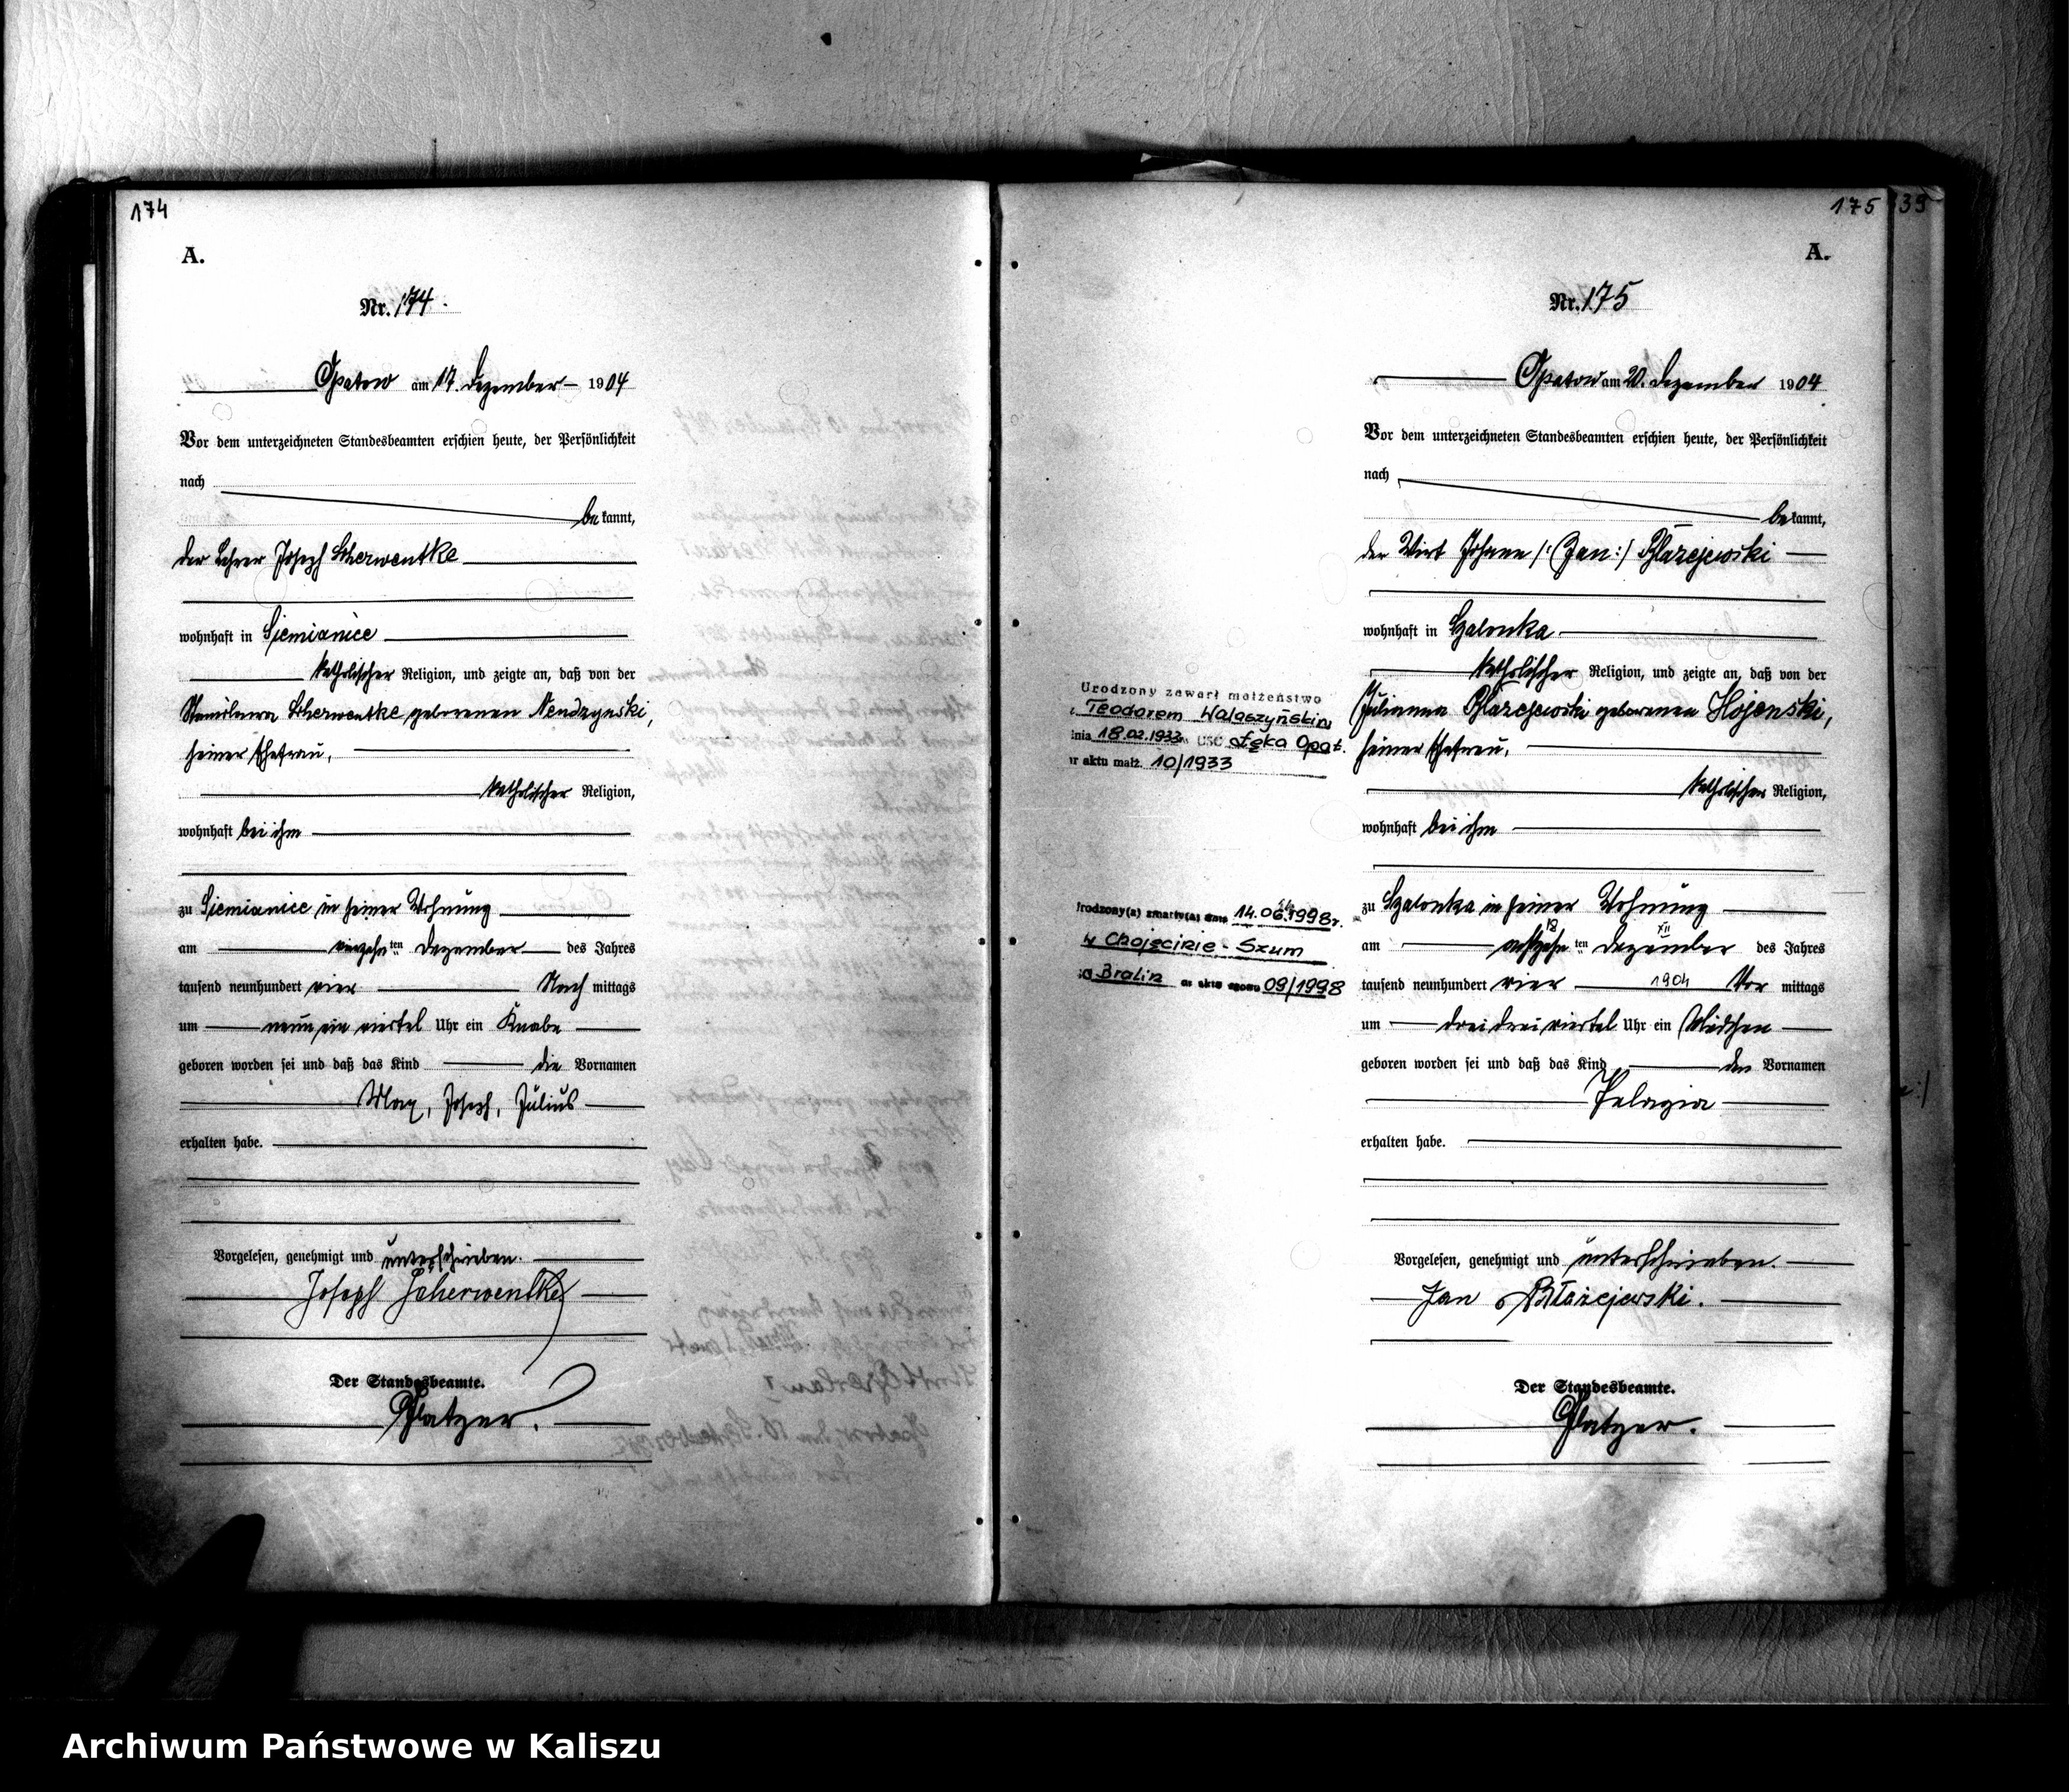 174
A.
Nr. 174.
Opatow am 17. Dezember 1904
Vor dem unterzeichneten Standesbeamten erschien heute, der Persönlichkeit
nach
bekannt,
der Lehrer Joseph Scherwentke
wohnhaft in Siemianice
katholischer Religion, und zeigte an, daß von der
Stanislawa Scherwentke geborenen Nendzynski,
seiner Ehefrau,
katholischer Religion,
wohnhaft bei ihm
zu Siemianice in seiner Wohnung
am vierzehnten Dezember des Jahres
tausend neunhundert vier Nach mittags
um neun ein viertel Uhr ein Knabe
geboren worden sei und daß das Kind die Vornamen
Max, Joseph, Julius
erhalten habe.
Vorgelesen, genehmigt und unterschrieben.
Joseph Scherwentke
Der Standesbeamte.
Platzer.
175 35
A.
Nr. 175
Opatow am 20. Dezember 1904
Vor dem unterzeichneten Standesbeamten erschien heute, der Persönlichkeit
nach
bekannt,
der Wirt Johann /:(Jan:/ Blazejewski
wohnhaft in Szalonka
katholischer Religion, und zeigte an, daß von der
Julianna Blazejewski geborenen Hojenski,
seiner Ehefrau,
katholischer Religion,
wohnhaft bei ihm
zu Szalonka in seiner Wohnung
18 XII
am achtzehnten Dezember des Jahres
tausend neunhundert vier 1904 Vor mittags
um drei drei viertel Uhr ein Mädchen
geboren worden sei und daß das Kind den Vornamen
Pelagia
erhalten habe.
Vorgelesen, genehmigt und unterschrieben.
Jan Błażejewski.
Der Standesbeamte.
Platzer.
Urodzony zawarł małżeństwo
Teodorem Walaszyńskim
dnia 18.02.1933 USC Łęka Opat.
nr aktu małż. 10/1933
Urodzony(a) zmarły(a) dnia 14.06.1998r.
w Chojęcinie - Szum
Bralin nr aktu zgonu 09/1998
Archiwum Państwowe w Kaliszu